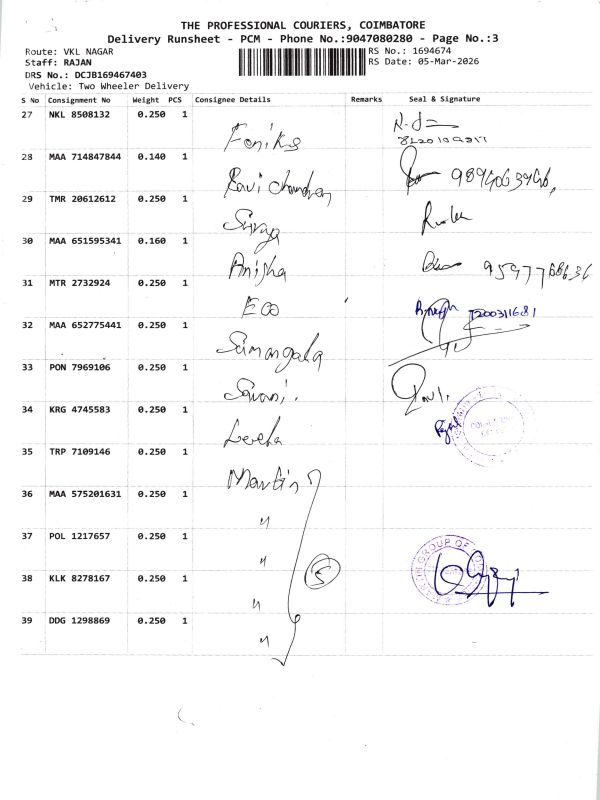 THE PROFESSIONAL COURIERS, COIMBATORE
Delivery Runsheet - PCM - Phone No.:9047080280 - Page No.:3
Route: VKL NAGAR
RS No.: 1694674
Staff: RAJAN
RS Date: 05-Mar-2026
DRS No.: DCJB169467403
Vehicle: Two Wheeler Delivery
S No Consignment No Weight PCS Consignee Details Remarks Seal & Signature
27 NKL 8508132 0.250 1
28 MAA 714847844 0.140 1
Ravi Chandran
29 TMR 20612612 0.250 1
Surya
30 MAA 651595341 0.160 1
Anisha
31 MTR 2732924 0.250 1
ECO
7200311681
32 MAA 652775441 0.250 1
Sumangala
33 PON 7969106 0.250 1
34 KRG 4745583 0.250 1
Leela
35 TRP 7109146 0.250 1
Martin
36 MAA 575201631 0.250 1
"
37 POL 1217657 0.250 1
"
5
MARTIN GROUP OF
38 KLK 8278167 0.250 1
"
39 DDG 1298869 0.250 1
"